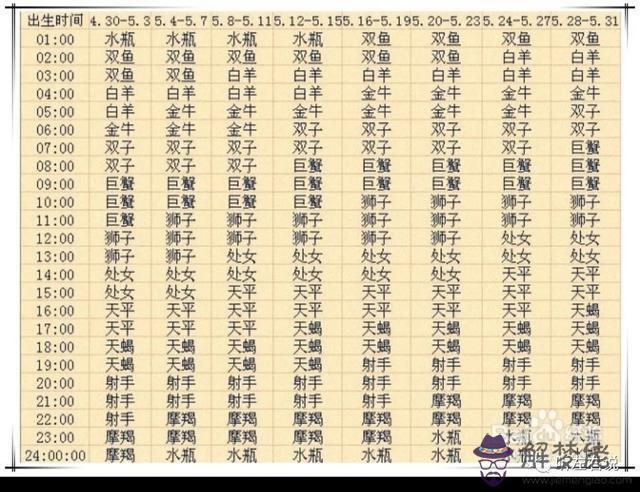 出生时间 4.30-5.3 5.4-5.7 5.8-5.11 5.12-5.15 5.16-5.19 5.20-5.23 5.24-5.27 5.28-5.31
01:00 水瓶 水瓶 水瓶 水瓶 双鱼 双鱼 双鱼 双鱼
02:00 双鱼 双鱼 双鱼 双鱼 双鱼 双鱼 白羊 白羊
03:00 双鱼 双鱼 白羊 白羊 白羊 白羊 白羊 白羊
04:00 白羊 白羊 白羊 白羊 金牛 金牛 金牛 金牛
05:00 白羊 金牛 金牛 金牛 金牛 金牛 金牛 双子
06:00 金牛 金牛 金牛 双子 双子 双子 双子 双子
07:00 双子 双子 双子 双子 双子 双子 双子 巨蟹
08:00 双子 双子 双子 巨蟹 巨蟹 巨蟹 巨蟹 巨蟹
09:00 巨蟹 巨蟹 巨蟹 巨蟹 巨蟹 巨蟹 巨蟹 巨蟹
10:00 巨蟹 巨蟹 巨蟹 巨蟹 狮子 狮子 狮子 狮子
11:00 巨蟹 狮子 狮子 狮子 狮子 狮子 狮子 狮子
12:00 狮子 狮子 狮子 狮子 狮子 狮子 处女 处女
13:00 狮子 狮子 处女 处女 处女 处女 处女 处女
14:00 处女 处女 处女 处女 处女 处女 天平 天平
15:00 处女 处女 天平 天平 天平 天平 天平 天平
16:00 天平 天平 天平 天平 天平 天平 天平 天蝎
17:00 天平 天平 天平 天蝎 天蝎 天蝎 天蝎 天蝎
18:00 天蝎 天蝎 天蝎 天蝎 天蝎 天蝎 天蝎 天蝎
19:00 天蝎 天蝎 天蝎 天蝎 射手 射手 射手 射手
20:00 射手 射手 射手 射手 射手 射手 射手 射手
21:00 射手 射手 射手 射手 射手 摩羯 摩羯 摩羯
22:00 射手 摩羯 摩羯 摩羯 摩羯 摩羯 摩羯
23:00 摩羯 摩羯 摩羯 摩羯 水瓶 水瓶 水瓶 水瓶
24:00:00 摩羯 水瓶 水瓶 水瓶 水瓶
解梦佬
www.jiemengliao.com